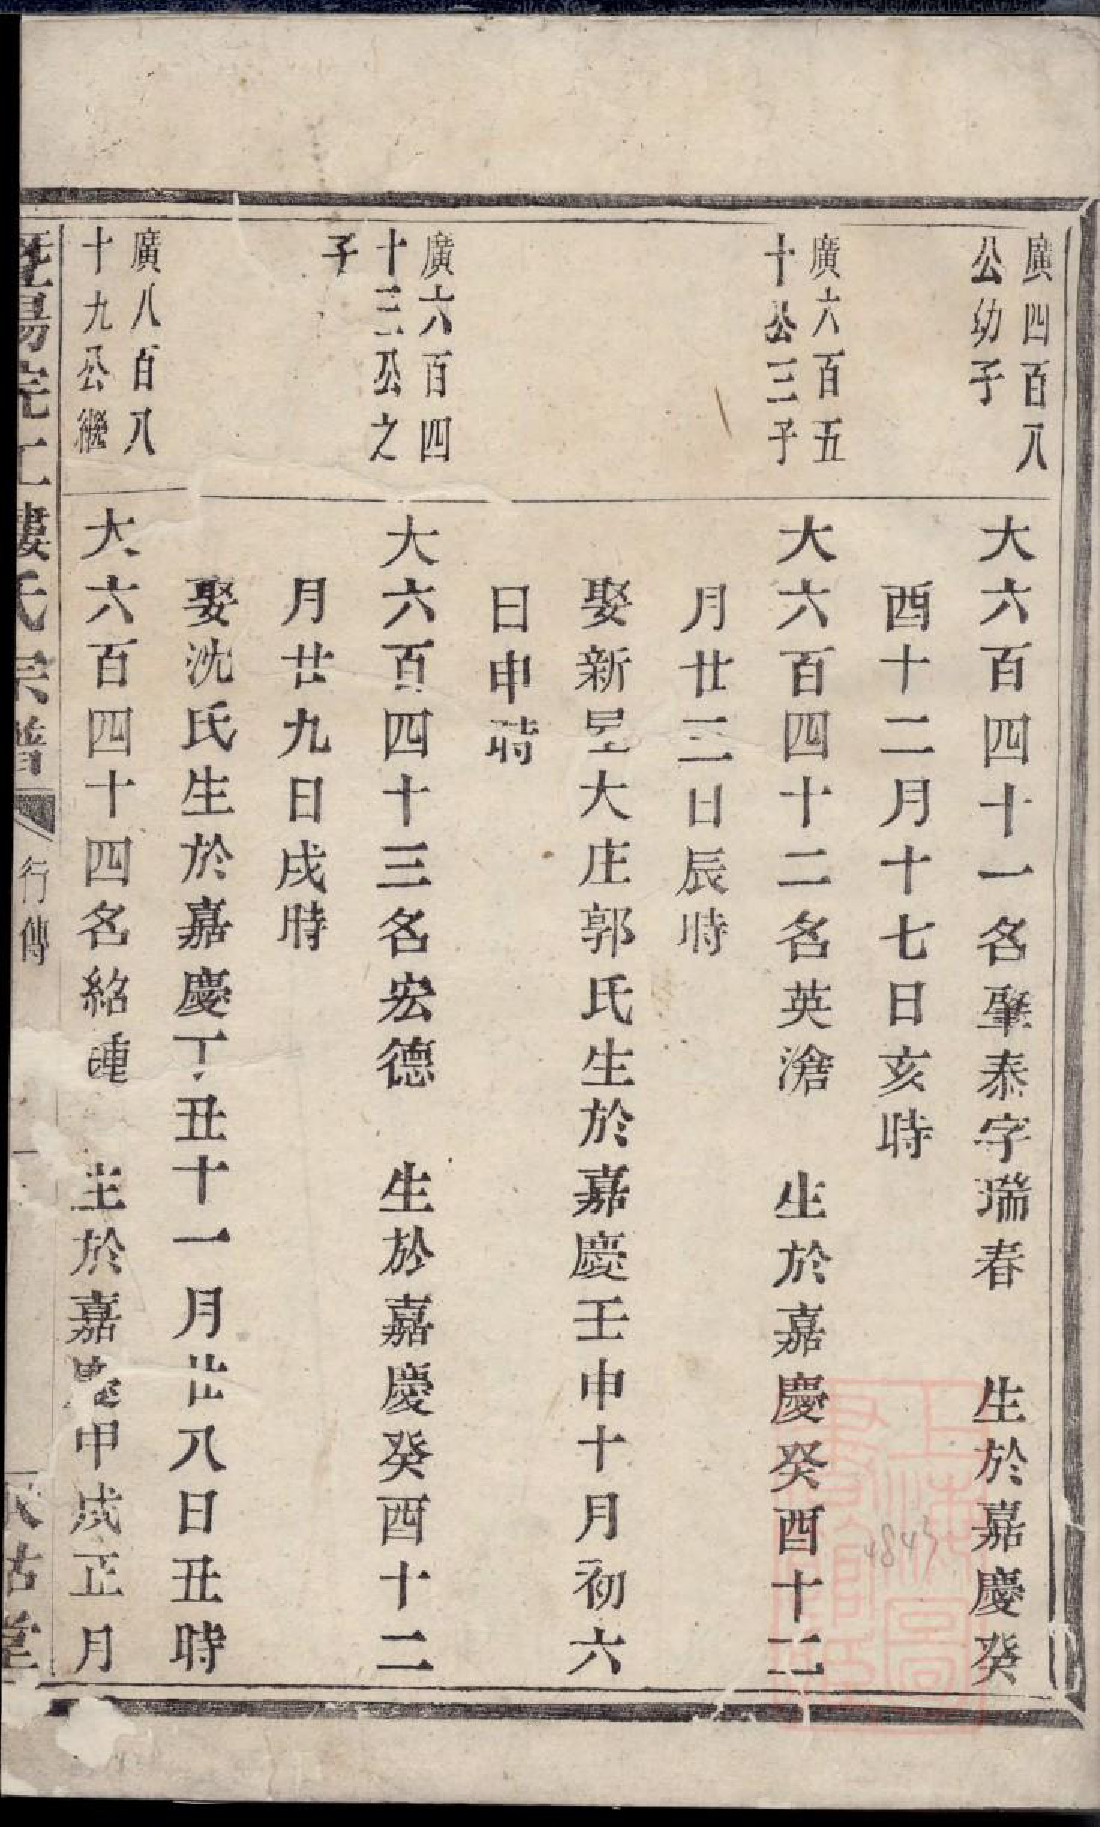 廣四百八
公幼子
大六百四十一名肇泰字瑞春 生於嘉慶癸
酉十二月十七日亥時
廣六百五
十公三子
大六百四十二名英滄 生於嘉慶癸酉十二
月廿三日辰時
娶新昱大庄郭氏生於嘉慶壬申十月初六
日申時
廣六百四
十三公之
子
大六百四十三名宏德 生於嘉慶癸酉十二
月廿九日戌時
娶沈氏生於嘉慶丁丑十一月廿八日丑時
廣八百八
十九公繼
大六百四十四名紹鍾 生於嘉慶甲戌正月
暨陽 樓氏宗譜
行傳
堂
上海圖書館藏
4843